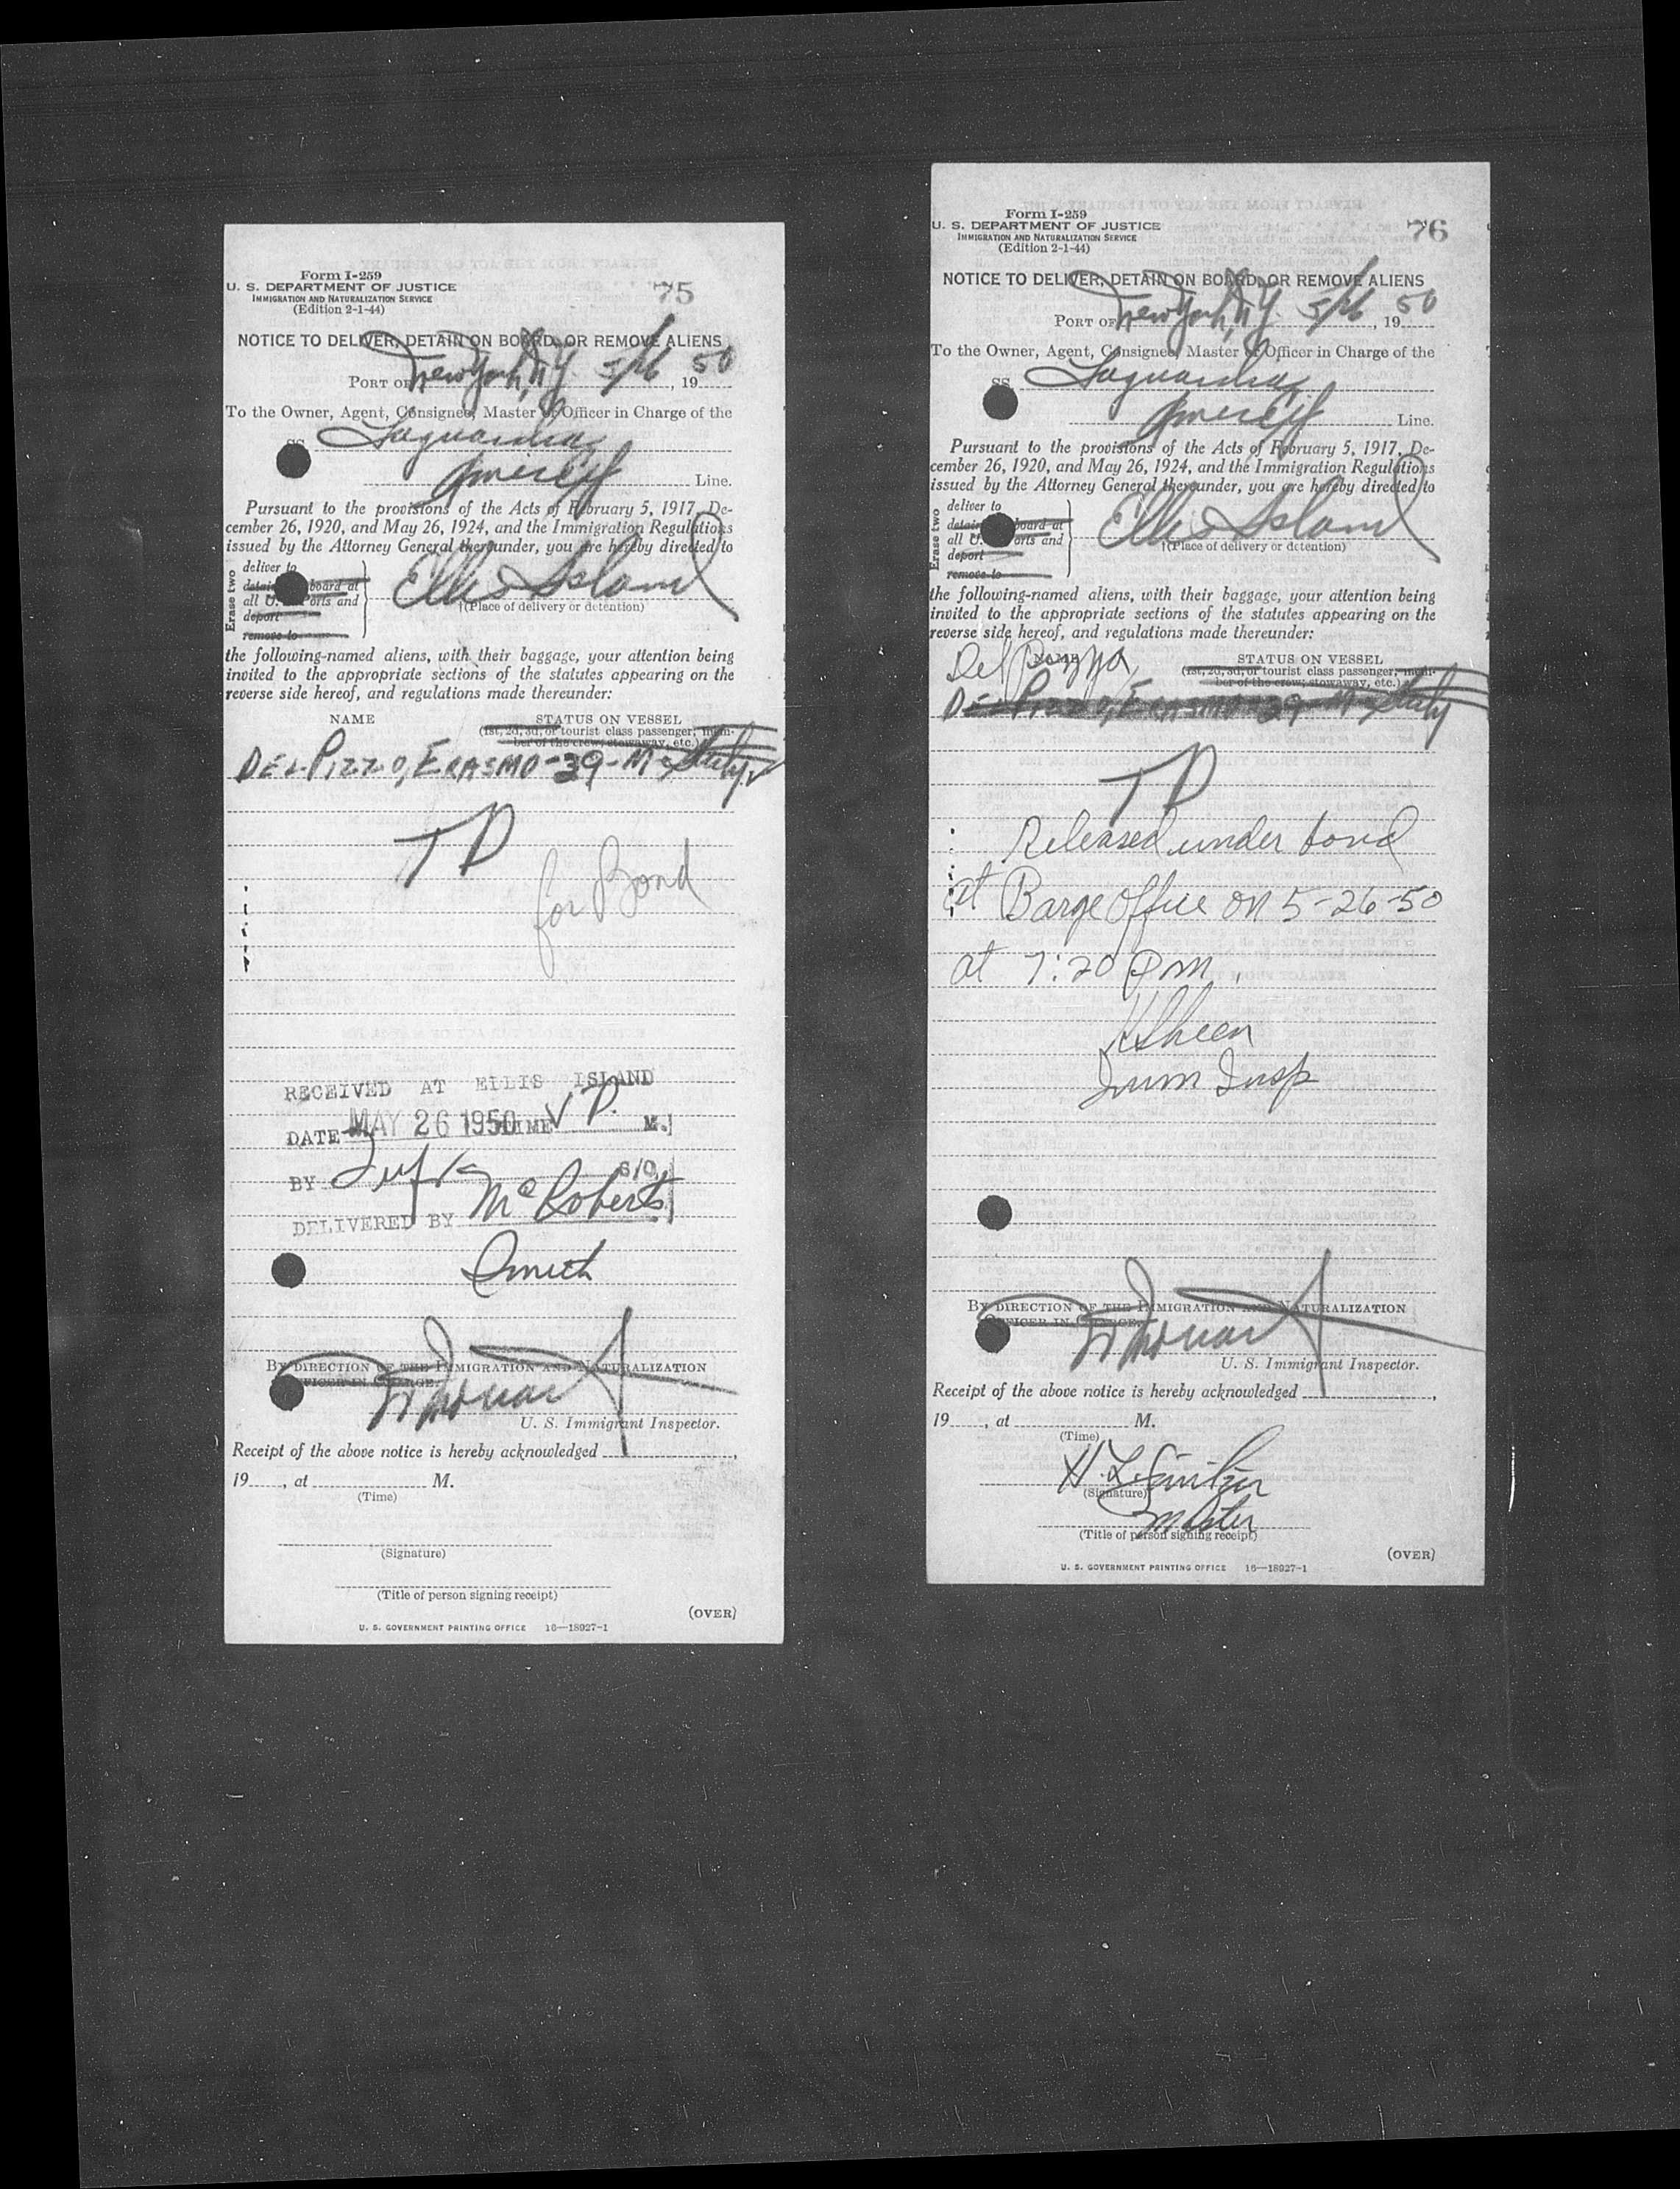 Form I-259
U. S. DEPARTMENT OF JUSTICE
IMMIGRATION AND NATURALIZATION SERVICE
(Edition 2-1-44)
75
NOTICE TO DELIVER, DETAIN ON BOARD, OR REMOVE ALIENS
PORT OF New York, N.Y. 5/26, 19 50
To the Owner, Agent, Consignee, Master or Officer in Charge of the
SS Laguardia
Amexp Line.
Pursuant to the provisions of the Acts of February 5, 1917, De-
cember 26, 1920, and May 26, 1924, and the Immigration Regulations
issued by the Attorney General thereunder, you are hereby directed to
Erase two
deliver to
detain board at
all U. orts and
deport
remove to
Ellis Island
(Place of delivery or detention)
the following-named aliens, with their baggage, your attention being
invited to the appropriate sections of the statutes appearing on the
reverse side hereof, and regulations made thereunder:
NAME STATUS ON VESSEL
(1st, 2d, 3d, or tourist class passenger, mem-
ber of the crew, stowaway, etc.)
DEL PIZZO, ERASMO-39-M-Italy
TD
for Bond
RECEIVED AT ELLIS ISLAND
DATE MAY 26 1950 TIME P. M.
BY S/O
DELIVERED BY McRoberts
Smith
BY DIRECTION OF THE IMMIGRATION AND NATURALIZATION
OFFICER IN CHARGE.
U. S. Immigrant Inspector.
Receipt of the above notice is hereby acknowledged
19 , at M.
(Time)
(Signature)
(Title of person signing receipt)
(OVER)
U. S. GOVERNMENT PRINTING OFFICE 16—18927-1
Form I-259
U. S. DEPARTMENT OF JUSTICE
IMMIGRATION AND NATURALIZATION SERVICE
(Edition 2-1-44)
76
NOTICE TO DELIVER, DETAIN ON BOARD, OR REMOVE ALIENS
PORT OF New York, N.Y. 5/26, 19 50
To the Owner, Agent, Consignee, Master or Officer in Charge of the
SS Laguardia
Amexp Line.
Pursuant to the provisions of the Acts of February 5, 1917, De-
cember 26, 1920, and May 26, 1924, and the Immigration Regulations
issued by the Attorney General thereunder, you are hereby directed to
Erase two
deliver to
detain board at
all U. orts and
deport
remove to
Ellis Island
(Place of delivery or detention)
the following-named aliens, with their baggage, your attention being
invited to the appropriate sections of the statutes appearing on the
reverse side hereof, and regulations made thereunder:
NAME STATUS ON VESSEL
(1st, 2d, 3d, or tourist class passenger, mem-
ber of the crew, stowaway, etc.)
DEL PIZZO, ERASMO-39-M-Italy
TD
Released under bond
at Barge Office on 5-26-50
at 7:20 Pm.
Imm Insp
BY DIRECTION OF THE IMMIGRATION AND NATURALIZATION
OFFICER IN CHARGE.
U. S. Immigrant Inspector.
Receipt of the above notice is hereby acknowledged
19 , at M.
(Time)
(Signature)
Master
(Title of person signing receipt)
(OVER)
U. S. GOVERNMENT PRINTING OFFICE 16—18927-1